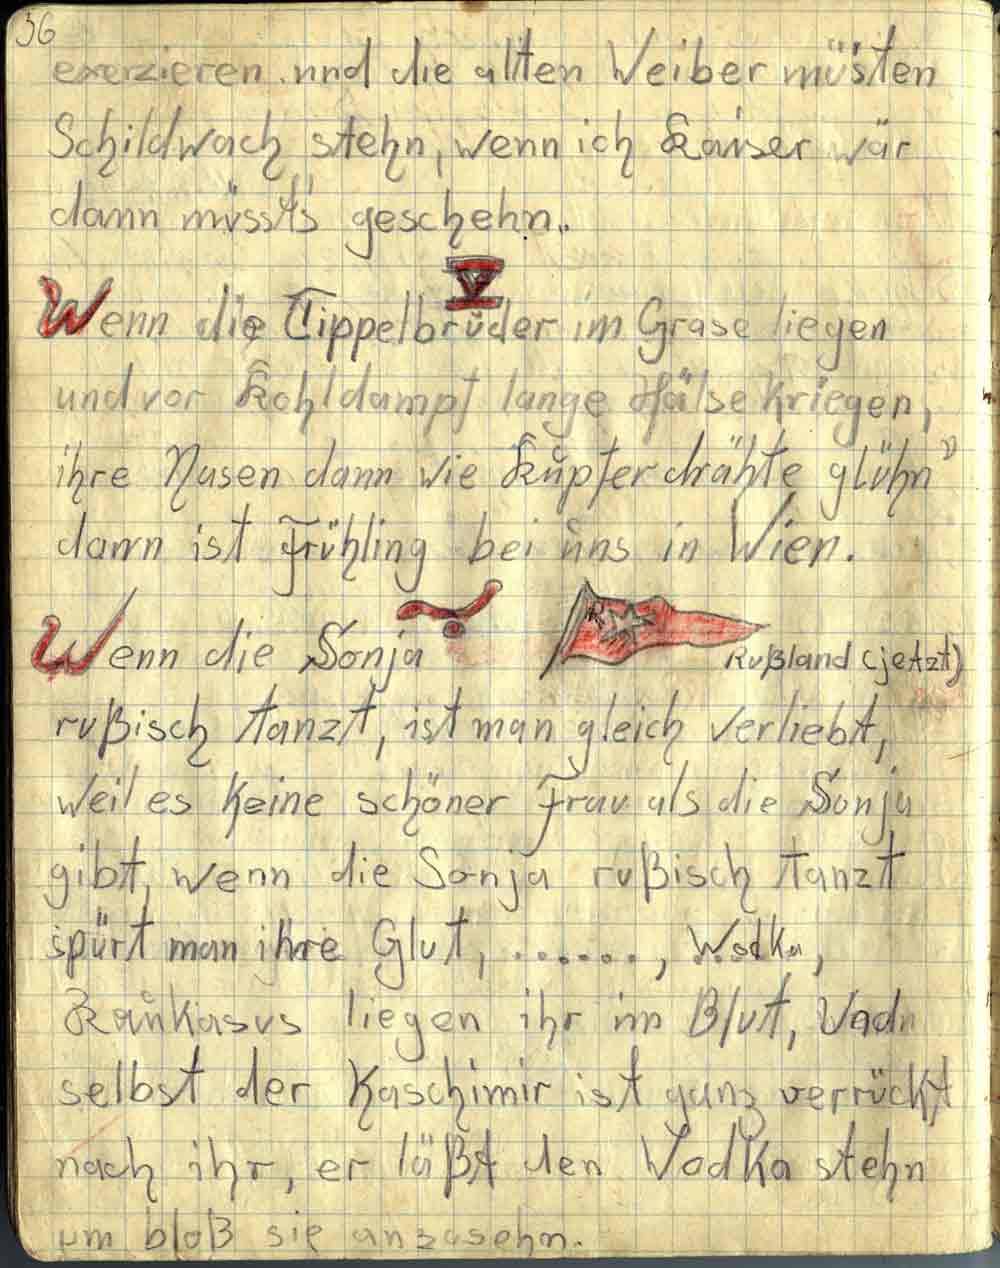 36
exerzieren und die alten Weiber müsten
Schildwach stehn, wenn ich Kaiser wär
dann müsst's geschehn.
V
Wenn die Tippelbrüder im Grase liegen
und vor Kohldampf lange Hälse kriegen,
ihre Nasen dann wie Kupferdrähte glühn
dann ist Frühling bei uns in Wien.
Wenn die Sonja
R
Rußland (jetzt)
rußisch tanzt, ist man gleich verliebt,
weil es keine schöner Frau als die Sonja
gibt, wenn die Sonja rußisch tanzt
spürt man ihre Glut, ......., Wodka,
Kaukasus liegen ihr im Blut, Uadn
selbst der Kaschimir ist ganz verrückt
nach ihr, er läßt den Wodka stehn
um bloß sie anzusehn.